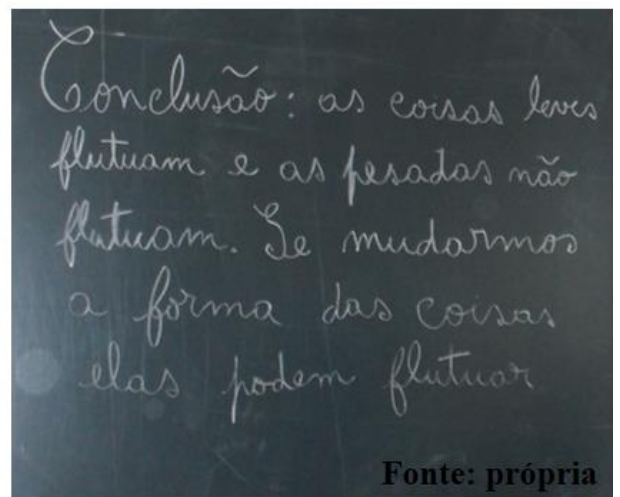 Conclusão: as coisas leves
flutuam e as pesadas não
flutuam. Se mudarmos
a forma das coisas
elas podem flutuar
Fonte: própria